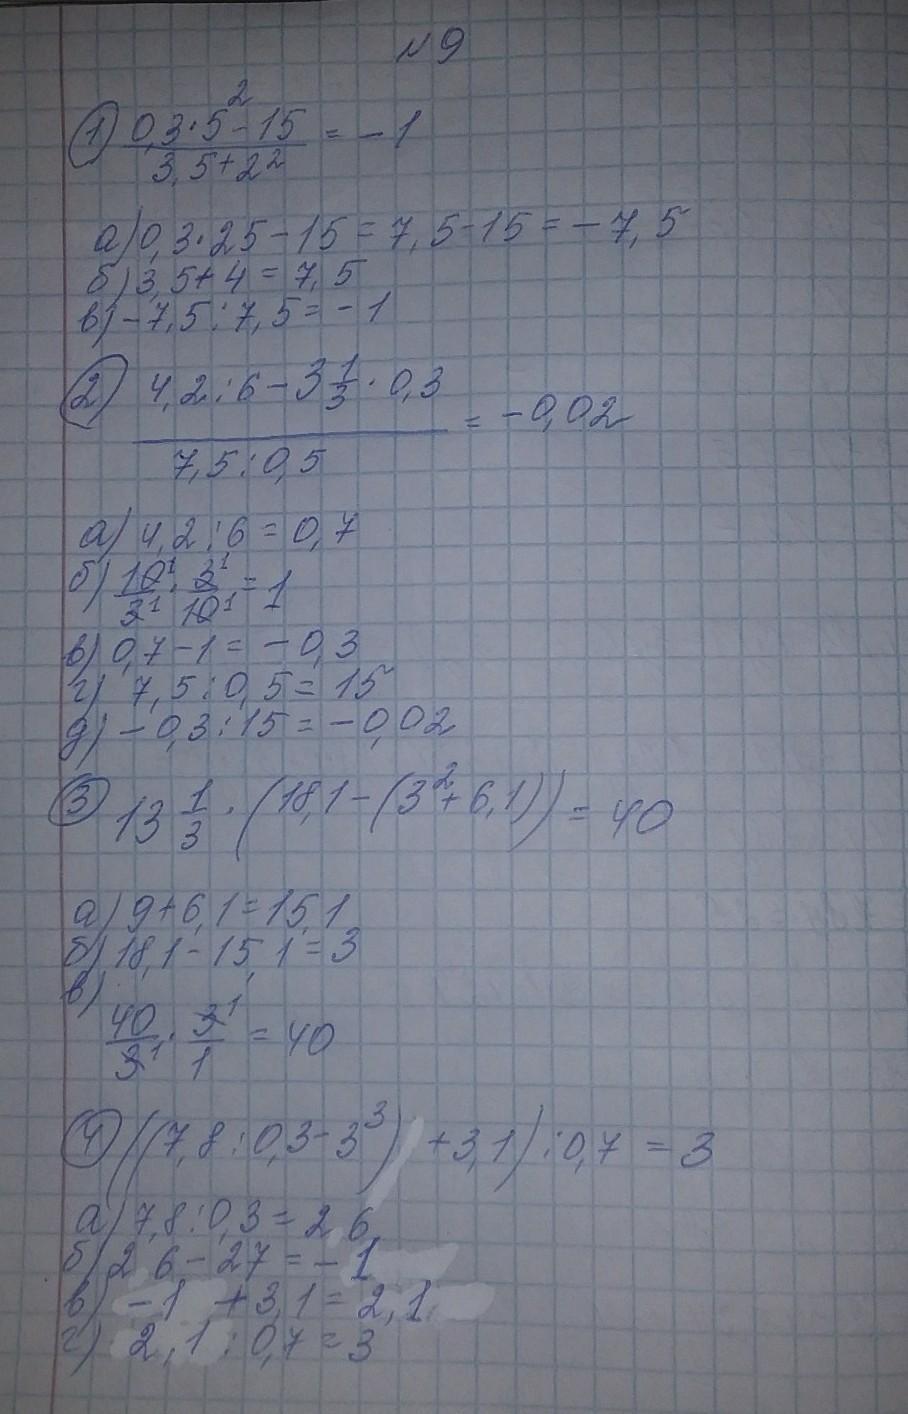 № 9
1) (0,3·5²-15)/(3,5+2²) = -1
а) 0,3·25-15=7,5-15=-7,5
б) 3,5+4=7,5
в) -7,5:7,5=-1
2) (4,2:6-3 1/3·0,3)/(7,5:0,5) = -0,02
а) 4,2:6=0,7
б) 10¹/3¹·3¹/10¹=1
в) 0,7-1=-0,3
г) 7,5:0,5=15
д) -0,3:15=-0,02
3) 13 1/3·(18,1-(3²+6,1))=40
а) 9+6,1=15,1
б) 18,1-15,1=3
в)
40/3¹·3¹/1=40
4) ((7,8:0,3-3³)+3,1):0,7=3
а) 7,8:0,3=26
б) 26-27=-1
в) -1+3,1=2,1
г) 2,1:0,7=3